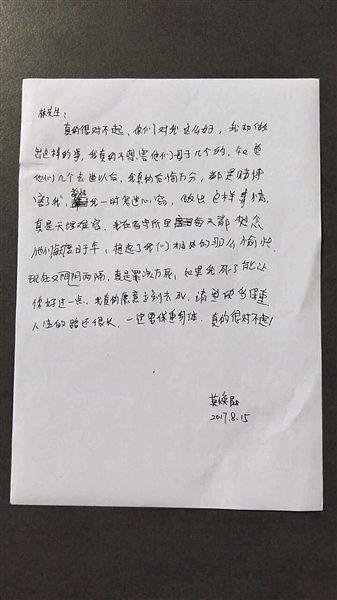 林先生：
真的很对不起、你们对我这么好，我却做
出这样的事，我真的不想害他们母子几个的，知道
他们几个去世以后，我真的后悔万分，都是赌博
害了我，我一时鬼迷心窍，做出这样事情，
真是天理难容。我在看守所里每天都想念
他们，想起了我们相处的那么愉快，
现在又阴阳两隔，真是罪该万死，如果我死了能让
你好过一点，我真的愿意立刻去死。请多保重
人生的路还很长、一定要保重身体、真的很对不起！
莫焕晶
2017.8.15